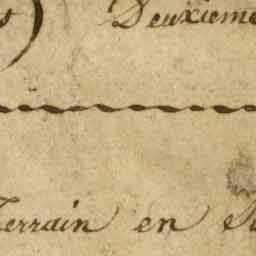 Deuxieme
Terrain en